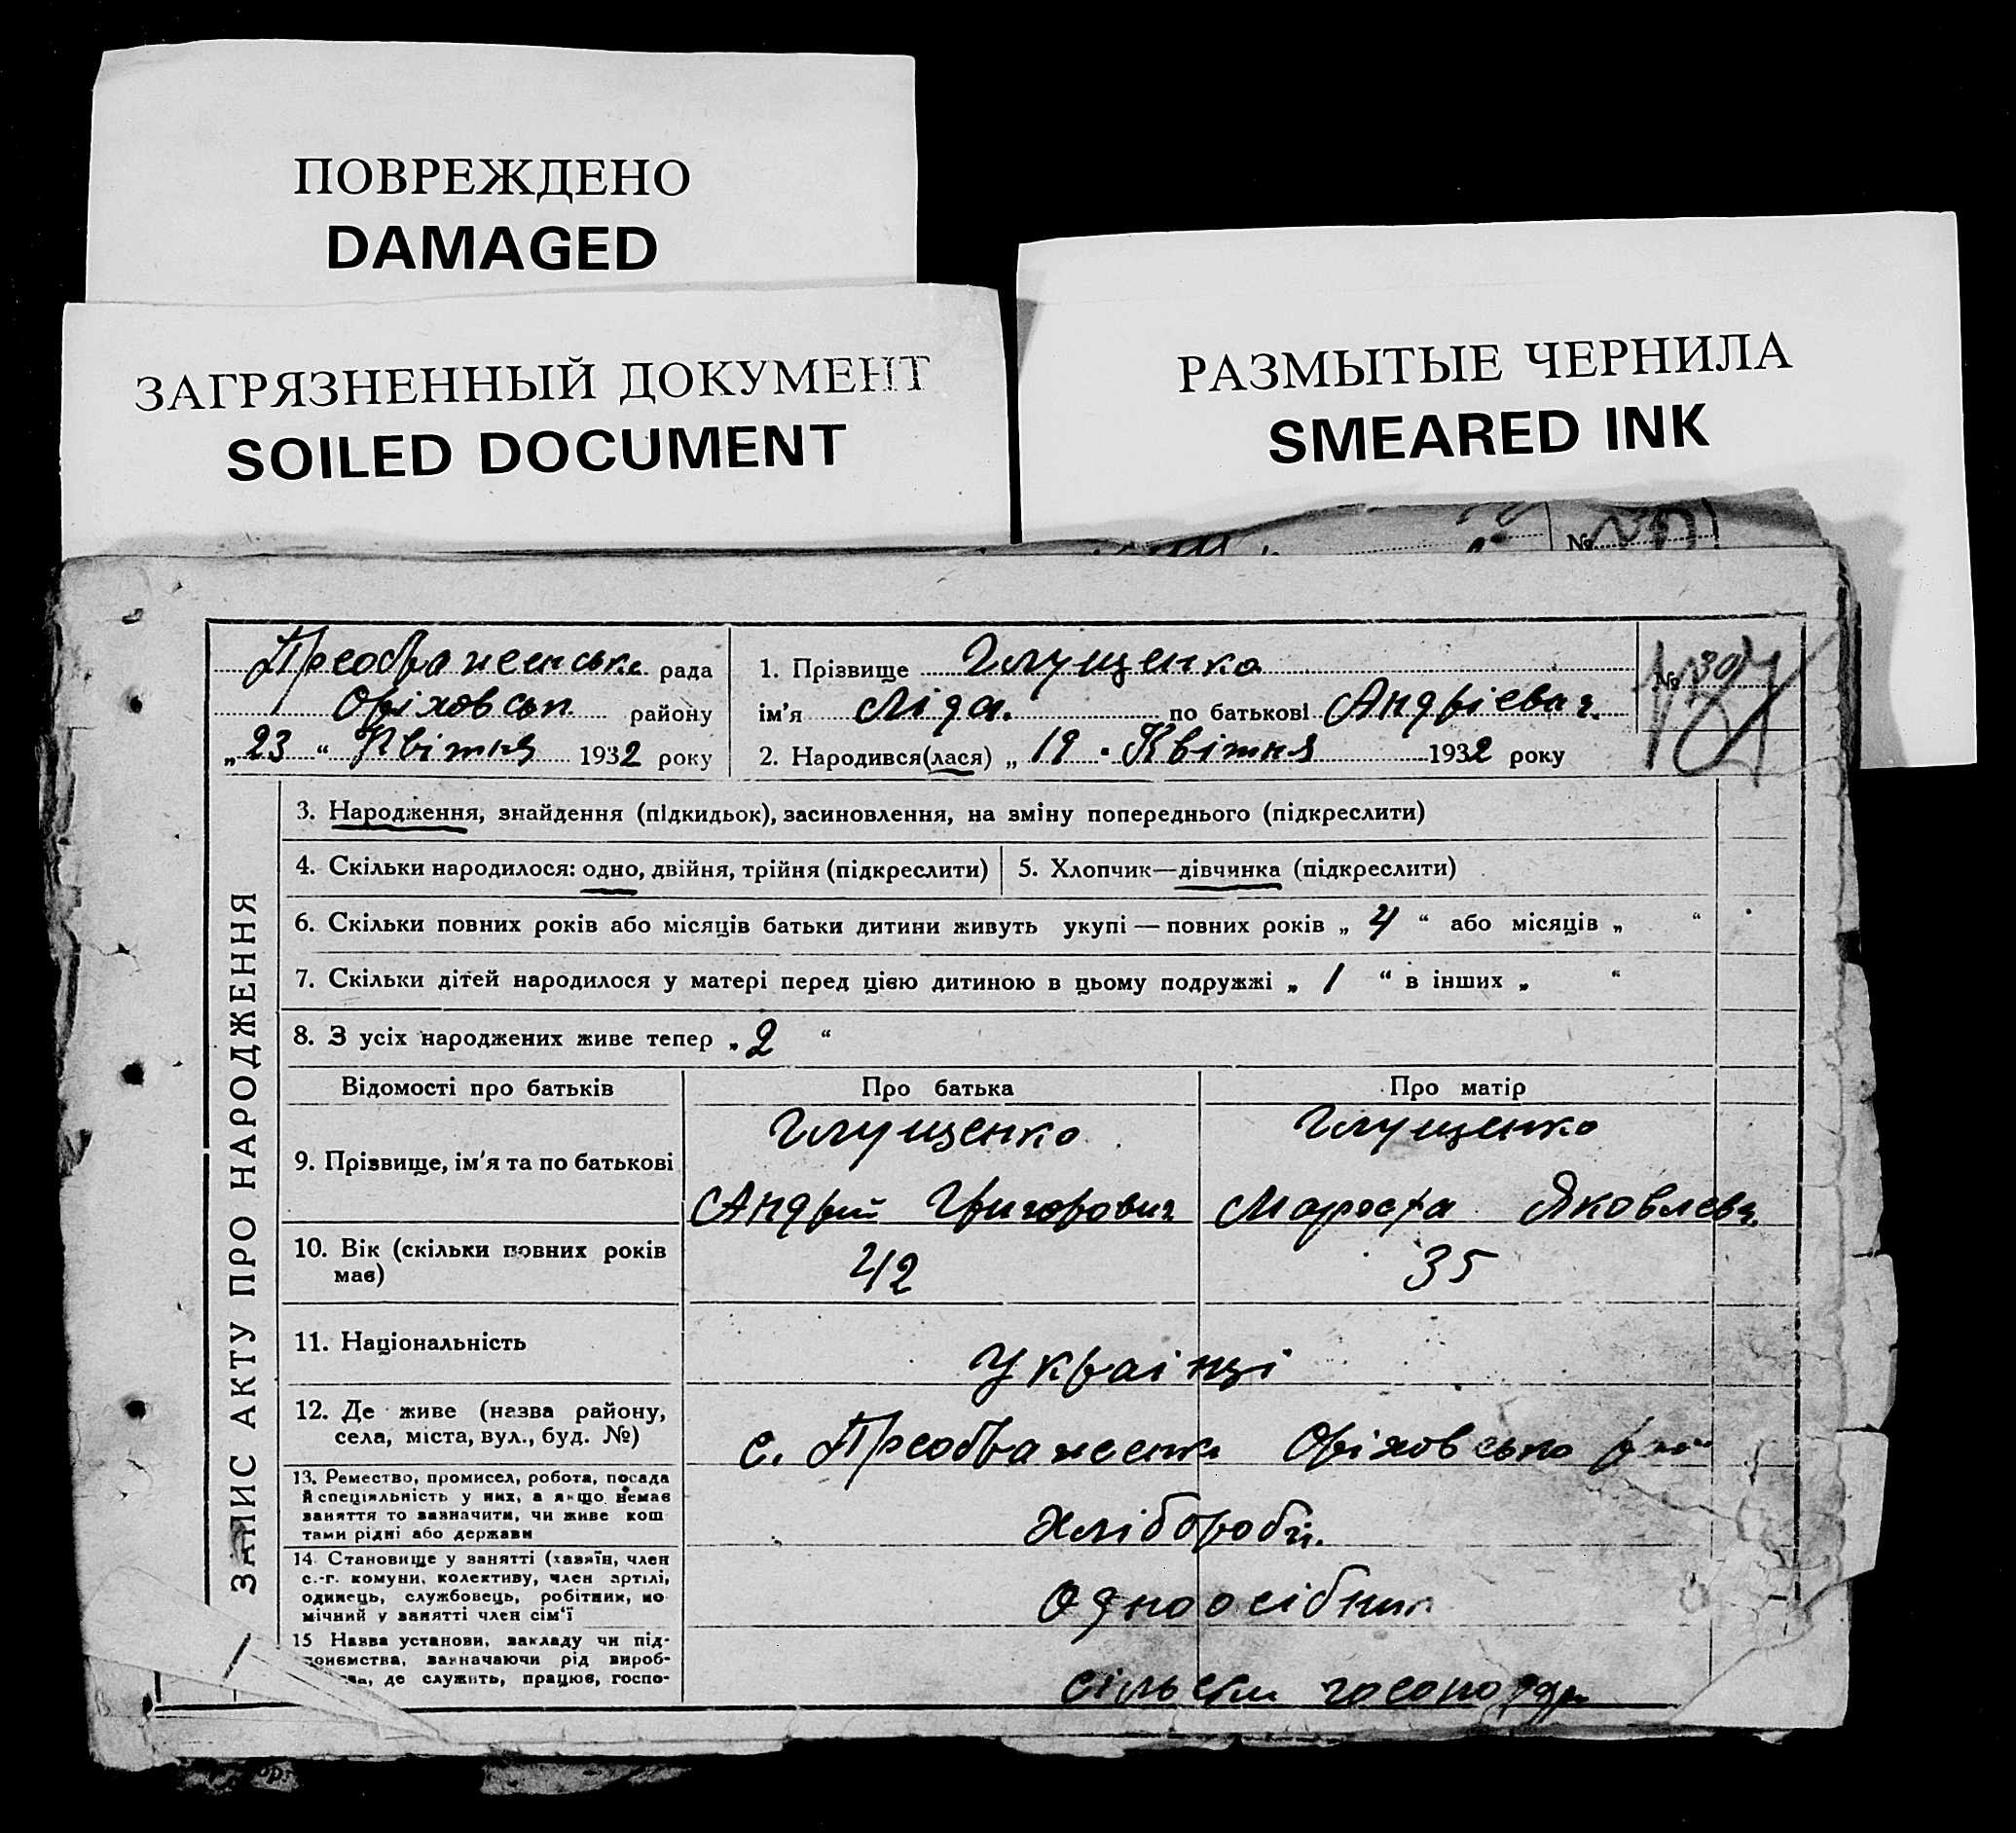 ПОВРЕЖДЕНО
DAMAGED
ЗАГРЯЗНЕННЫЙ ДОКУМЕНТ
SOILED DOCUMENT
РАЗМЫТЫЕ ЧЕРНИЛА
SMEARED INK
№
ЗАПИС АКТУ ПРО НАРОДЖЕННЯ
Преображенська рада
Оріховськ району
„23“ Квітня 1932 року
1. Прізвище Глущенко
ім'я Ліда. по батькові Андрієвач.
2. Народився(лася) „19 Квітня 1932 року
№
3. Народження, знайдення (підкидьок), засиновлення, на зміну попереднього (підкреслити)
4. Скільки народилося: одно, двійня, трійня (підкреслити)
5. Хлопчик—дівчинка (підкреслити)
6. Скільки повних років або місяців батьки дитини живуть укупі — повних років „ 4 “ або місяців „ “
7. Скільки дітей народилося у матері перед цією дитиною в цьому подружжі „ 1 “ в інших „ “
8. З усіх народжених живе тепер „ 2 “
Відомості про батьків Про батька Про матір
9. Прізвище, ім'я та по батькові
Глущенко Глущенко
Андрій Григорович Яковлевн.
10. Вік (скільки повних років
має)
42 35
11. Національність
Украінці
12. Де живе (назва району,
села, міста, вул., буд. №)
с. Преображенка Оріховсько
13. Ремество, промисел, робота, посада
й спеціяльність у них, а якщо немає
заняття то зазначити, чи живе кош
тами рідні або держави
Хлібороби.
14. Становище у занятті (хазяїн, член
с.-г. комуни, колективу, член артілі,
одинець, службовець, робітник, по
мічний у занятті член сім'ї
Одноосібник
15 Назва установи, закладу чи під-
приємства, зазначаючи рід вироб-
де служить, працює, госпо-
сільськ